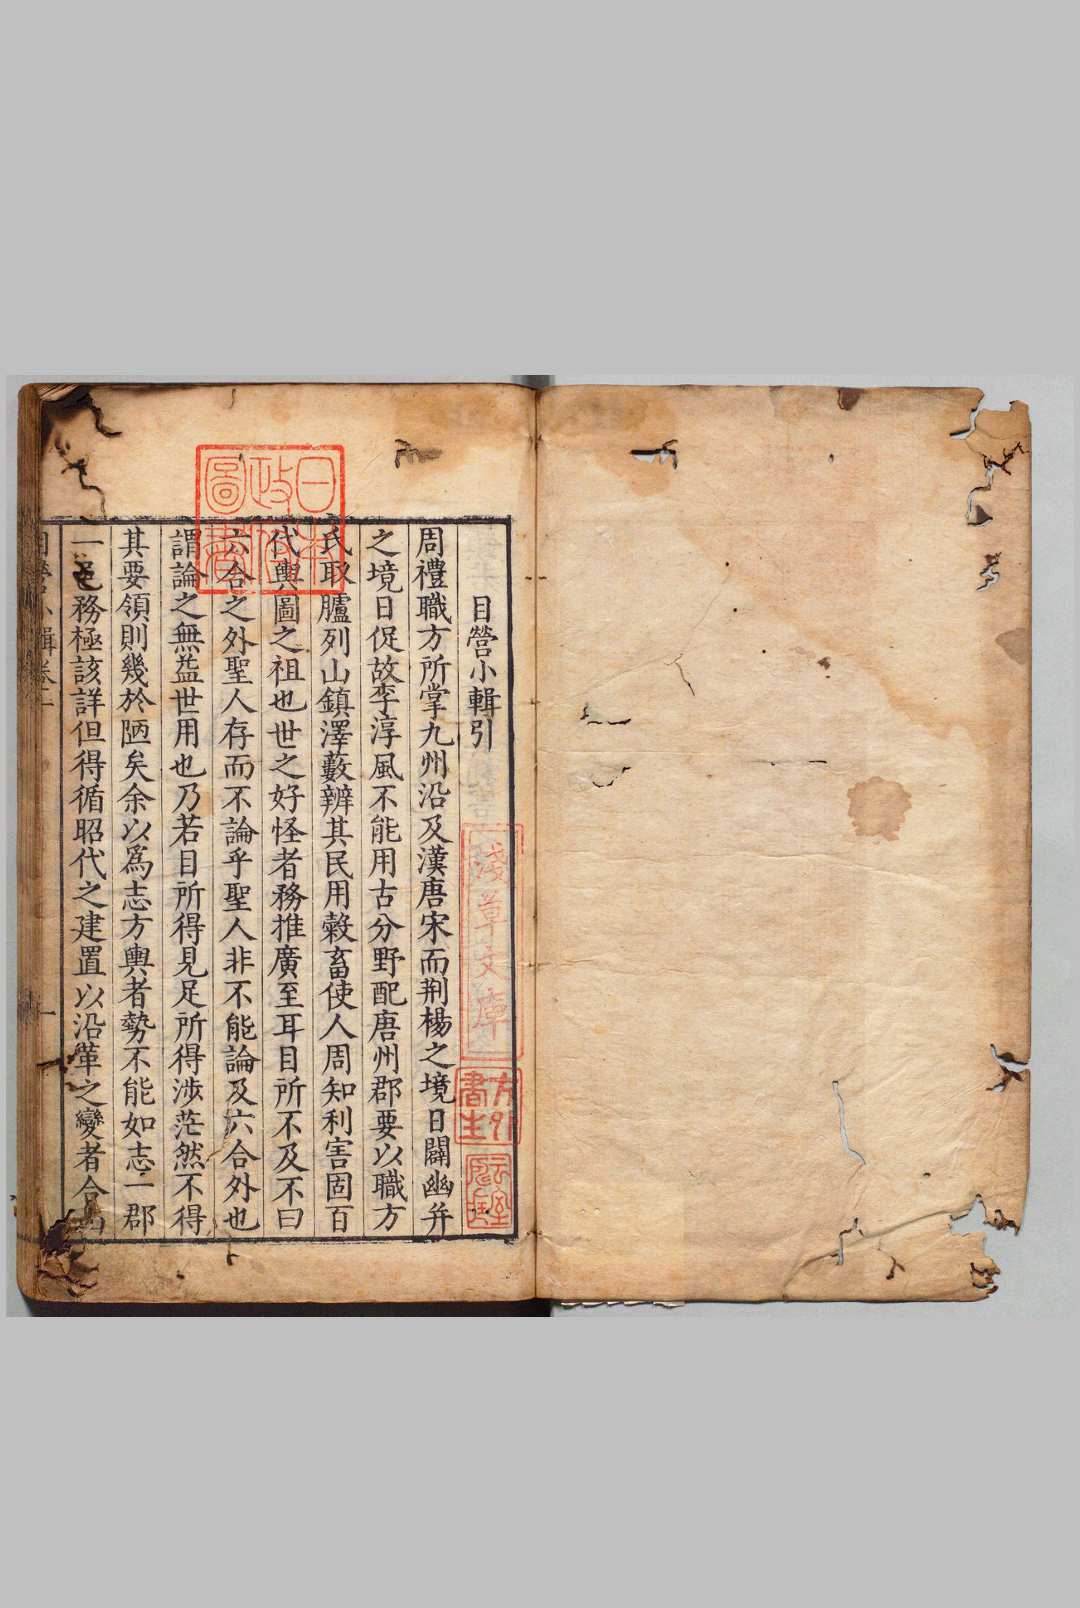 目營小輯引
周禮職方所掌九州沿及漢唐宋而荆楊之境日闢幽并
之境日促故李淳風不能用古分野配唐州郡要以職方
氏取臚列山鎮澤藪辨其民用穀畜使人周知利害固百
代輿圖之祖也世之好怪者務推廣至耳目所不及不曰
六合之外聖人存而不論乎聖人非不能論及六合外也
謂論之無益世用也乃若目所得見足所得涉茫然不得
其要領則幾於陋矣余以爲志方輿者勢不能如志一郡
一邑務極該詳但得循昭代之建置以沿革之變者合
目營小輯卷
一
日本
政府
圖書
淺草文庫